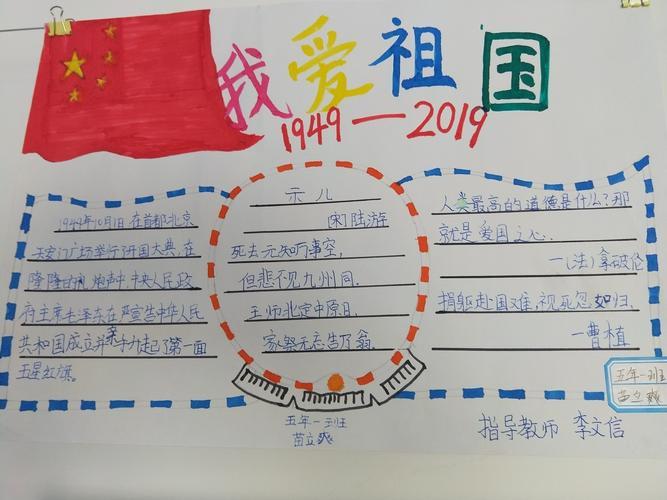 我爱祖国
1949—2019
1949年10月1日,在首都北京
天安门广场举行开国大典,在
隆隆的礼炮声中,中央人民政
府主席毛泽东在严宣告中华人民
共和国成立并亲手升起了第一面
五星红旗。
示儿
宋陆游
死去元知万事空,
但悲不见九州同.
王师北定中原日,
家祭无忘告乃翁.
人类最高的道德是什么?那
就是爱国之心.
—(法)拿破伦
捐躯赴国难,视死忽如归.
—曹植
五年一班
苗立爽
五年一班
苗立爽
指导教师 李文信